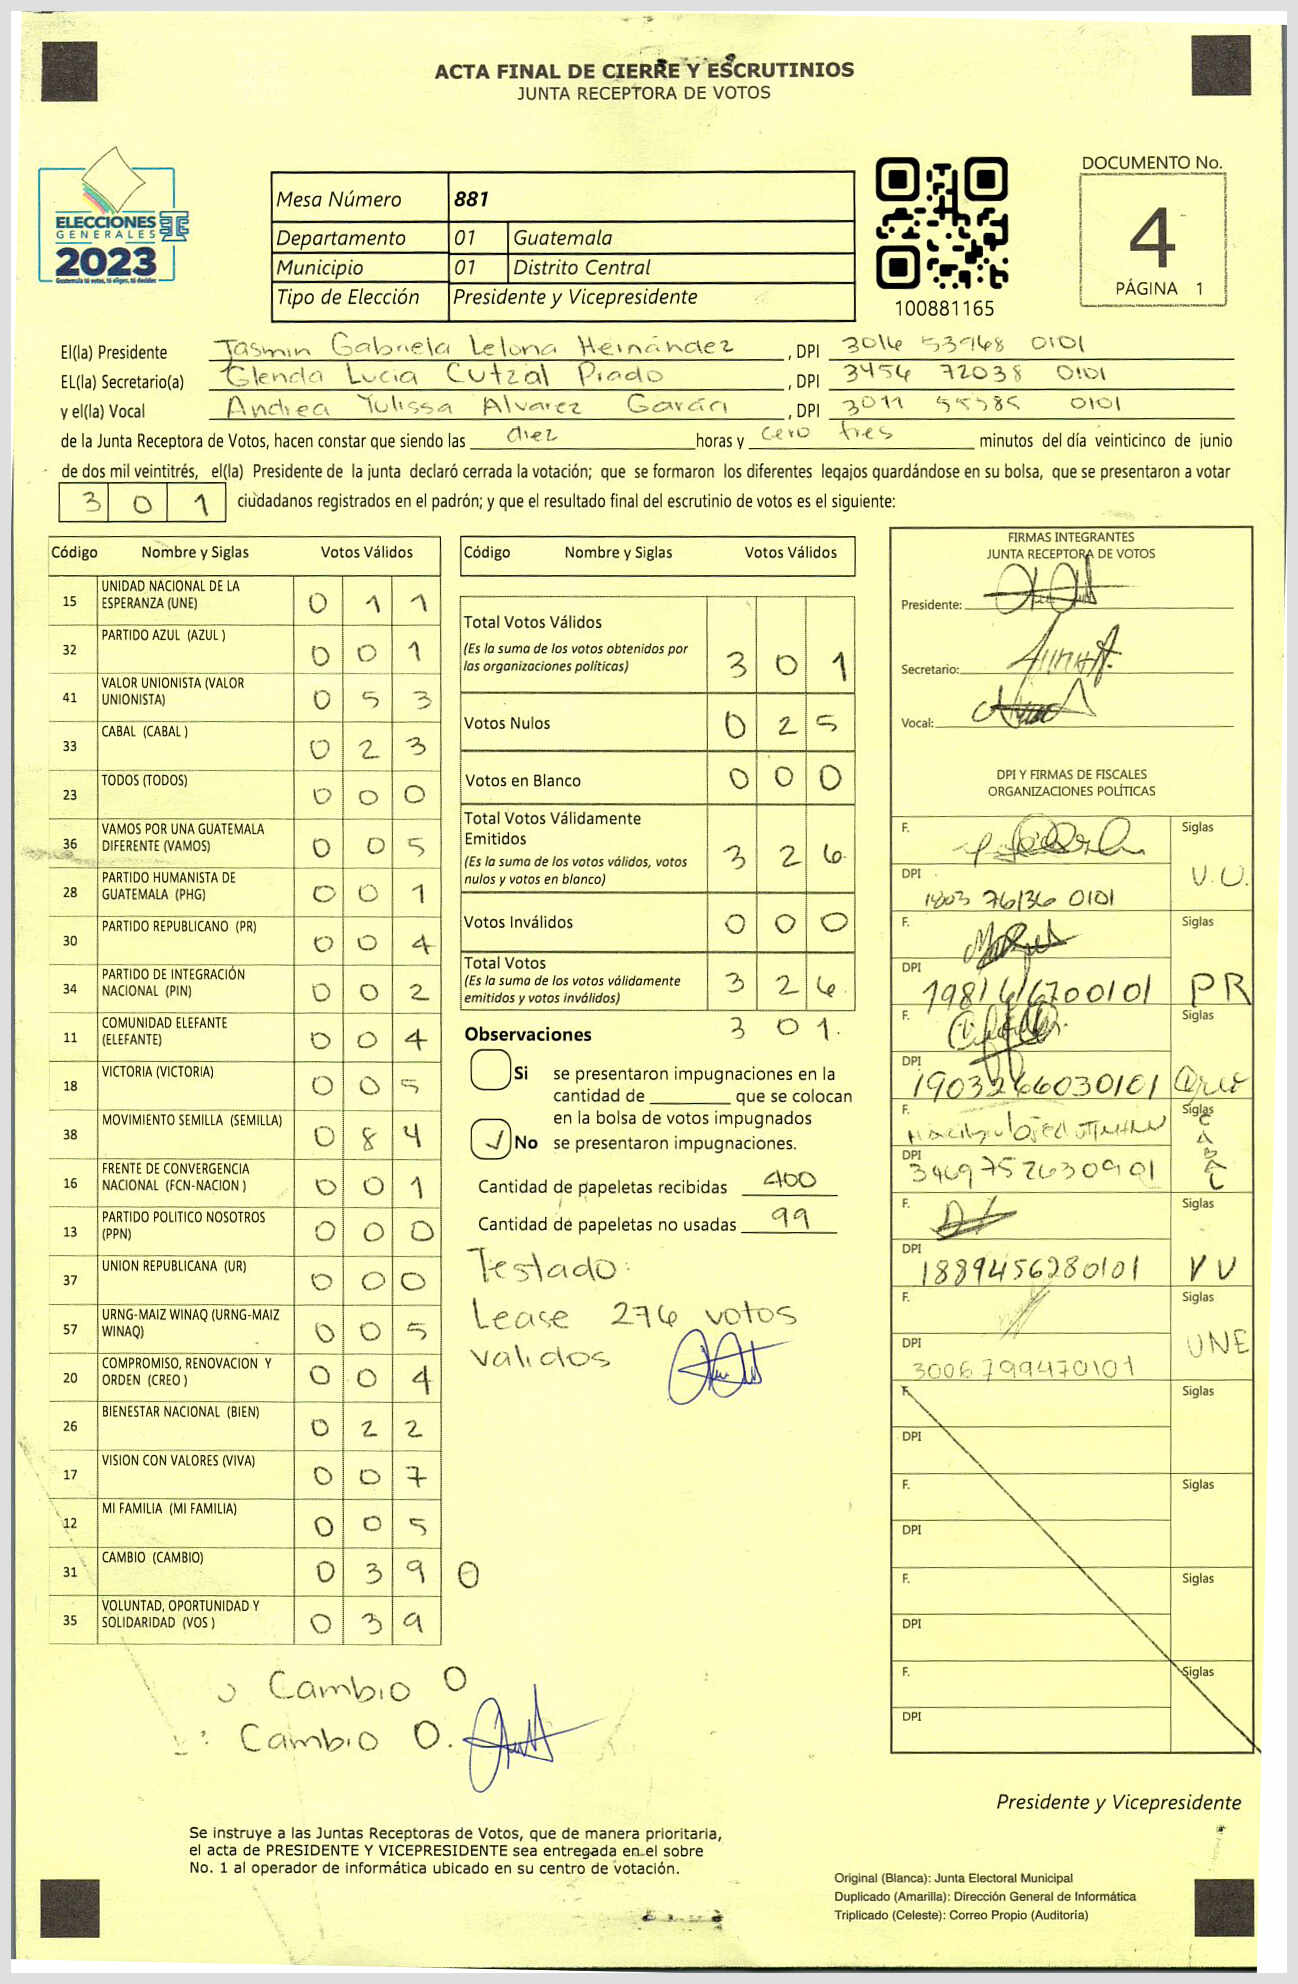 ACTA FINAL DE CIERRE Y ESCRUTINIOS
JUNTA RECEPTORA DE VOTOS
ELECCIONES
GENERALES
2023
Guatemala tú votas, tú eliges, tú decides
Mesa Número 881
Departamento 01 Guatemala
Municipio 01 Distrito Central
Tipo de Elección Presidente y Vicepresidente
100881165
DOCUMENTO No.
4
PÁGINA 1
El(la) Presidente Jasmin Gabriela Hernández , DPI 3016 53968 0101
EL(la) Secretario(a) Glenda Lucia Cutzal Prado , DPI 3456 72038 0101
y el(la) Vocal Andrea Yulissa Alvarez García , DPI 3011 0101
de la Junta Receptora de Votos, hacen constar que siendo las diez horas y cero tres minutos del día veinticinco de junio
de dos mil veintitrés, el(la) Presidente de la junta declaró cerrada la votación; que se formaron los diferentes legajos guardándose en su bolsa, que se presentaron a votar
301 ciudadanos registrados en el padrón; y que el resultado final del escrutinio de votos es el siguiente:
Código Nombre y Siglas Votos Válidos
15 UNIDAD NACIONAL DE LA ESPERANZA (UNE) 0 1 1
32 PARTIDO AZUL (AZUL ) 0 0 1
41 VALOR UNIONISTA (VALOR UNIONISTA) 0 5 3
33 CABAL (CABAL ) 0 2 3
23 TODOS (TODOS) 0 0 0
36 VAMOS POR UNA GUATEMALA DIFERENTE (VAMOS) 0 0 5
28 PARTIDO HUMANISTA DE GUATEMALA (PHG) 0 0 1
30 PARTIDO REPUBLICANO (PR) 0 0 4
34 PARTIDO DE INTEGRACIÓN NACIONAL (PIN) 0 0 2
11 COMUNIDAD ELEFANTE (ELEFANTE) 0 0 4
18 VICTORIA (VICTORIA) 0 0 5
38 MOVIMIENTO SEMILLA (SEMILLA) 0 8 4
16 FRENTE DE CONVERGENCIA NACIONAL (FCN-NACION ) 0 0 1
13 PARTIDO POLITICO NOSOTROS (PPN) 0 0 0
37 UNION REPUBLICANA (UR) 0 0 0
57 URNG-MAIZ WINAQ (URNG-MAIZ WINAQ) 0 0 5
20 COMPROMISO, RENOVACION Y ORDEN (CREO ) 0 0 4
26 BIENESTAR NACIONAL (BIEN) 0 2 2
17 VISION CON VALORES (VIVA) 0 0 7
12 MI FAMILIA (MI FAMILIA) 0 0 5
31 CAMBIO (CAMBIO) 0 3 9 0
35 VOLUNTAD, OPORTUNIDAD Y SOLIDARIDAD (VOS ) 0 3 9
Cambio 0
Cambio 0.
Código Nombre y Siglas Votos Válidos
Total Votos Válidos
(Es la suma de los votos obtenidos por
las organizaciones políticas) 3 0 1
Votos Nulos 0 2 5
Votos en Blanco 0 0 0
Total Votos Válidamente
Emitidos
(Es la suma de los votos válidos, votos
nulos y votos en blanco) 3 2 6
Votos Inválidos 0 0 0
Total Votos
(Es la suma de los votos válidamente
emitidos y votos inválidos) 3 2 6
3 0 1.
Observaciones
Si se presentaron impugnaciones en la
cantidad de ________ que se colocan
en la bolsa de votos impugnados
No se presentaron impugnaciones.
Cantidad de papeletas recibidas 400
Cantidad de papeletas no usadas 99
Testado:
Lease 276 votos
validos
FIRMAS INTEGRANTES
JUNTA RECEPTORA DE VOTOS
Presidente:
Secretario:
Vocal:
DPI Y FIRMAS DE FISCALES
ORGANIZACIONES POLÍTICAS
F. Siglas
DPI 1803 76136 0101 V.U.
F. Siglas
DPI PR
F. Siglas
DPI 1903266030101
F. Siglas
DPI 3469752630901 CABAL
F. Siglas
DPI 1889456280101 VU
F. Siglas
DPI 3006799470101 UNE
F. Siglas
DPI
F. Siglas
DPI
F. Siglas
DPI
F. Siglas
DPI
Presidente y Vicepresidente
Se instruye a las Juntas Receptoras de Votos, que de manera prioritaria,
el acta de PRESIDENTE Y VICEPRESIDENTE sea entregada en el sobre
No. 1 al operador de informática ubicado en su centro de votación.
Original (Blanca): Junta Electoral Municipal
Duplicado (Amarilla): Dirección General de Informática
Triplicado (Celeste): Correo Propio (Auditoría)